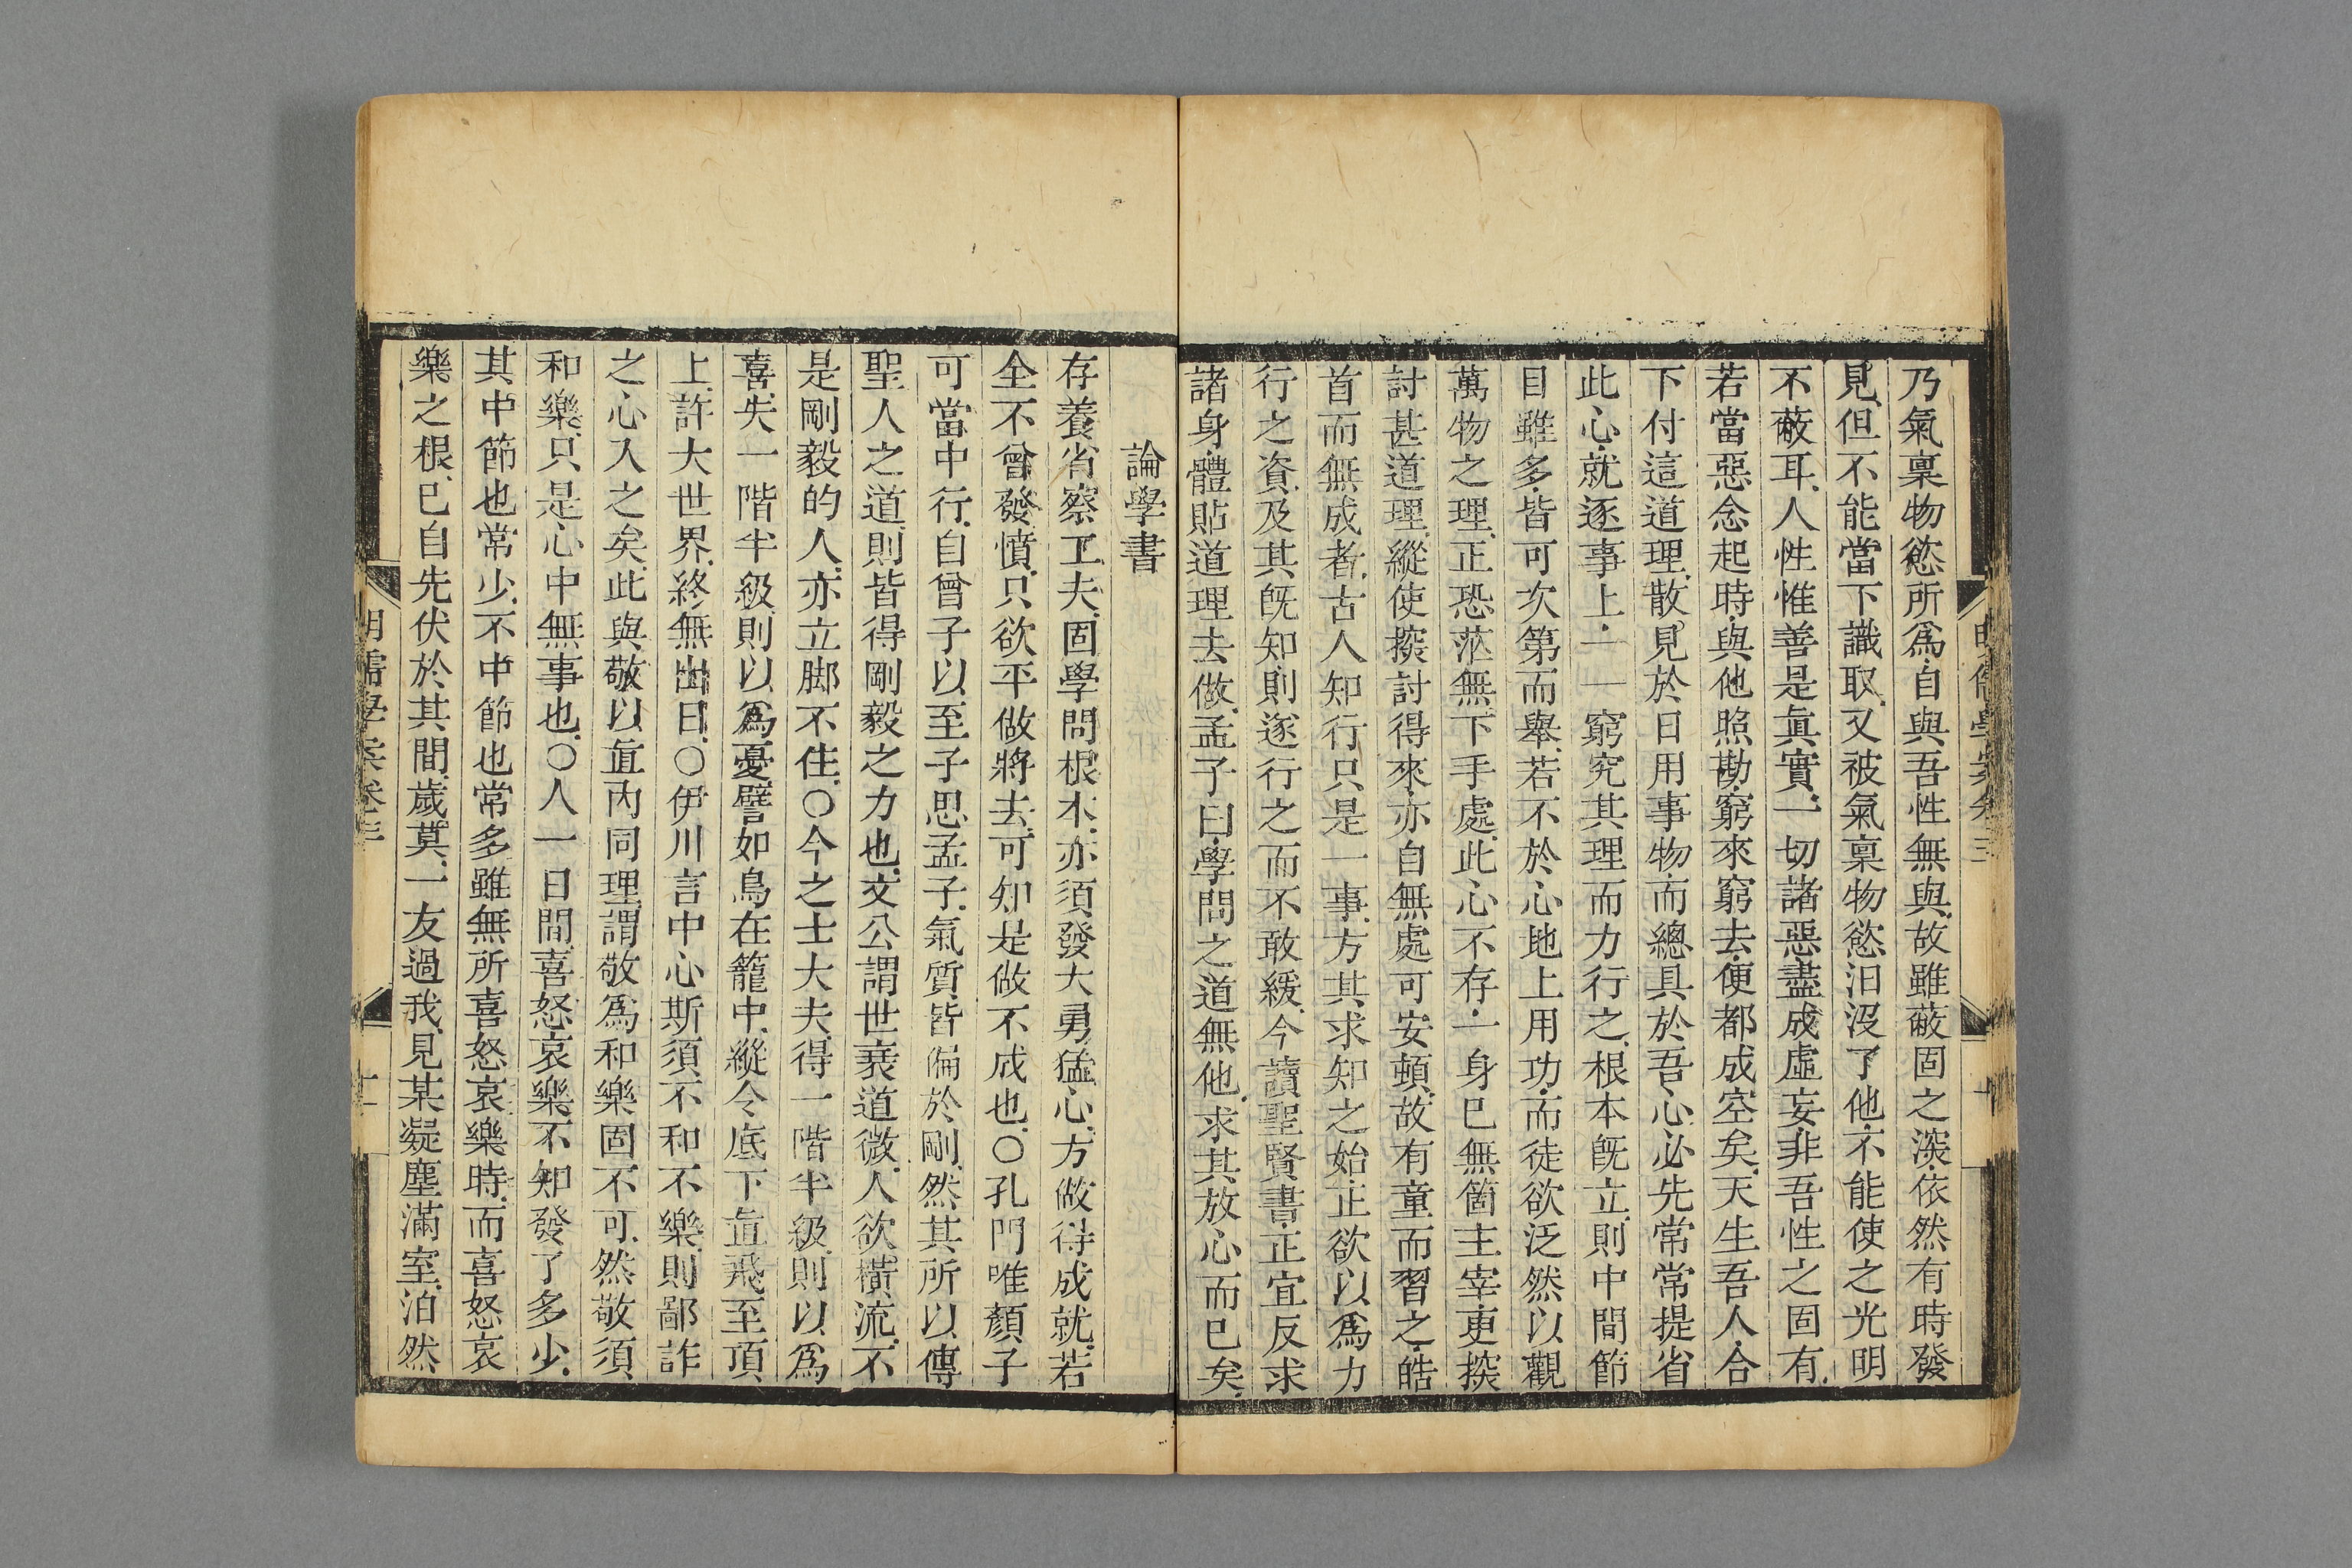 乃氣稟物慾所爲自與吾性無與故雖蔽固之深依然有時發
見但不能當下識取又被氣稟物慾汨沒了他不能使之光明
不蔽耳人性惟善是眞實一切諸惡盡成虛妄非吾性之固有
若當惡念起時與他照勘窮來窮去便都成空矣天生吾人合
下付這道理散見於日用事物而總具於吾心必先常常提省
此心就逐事上一一窮究其理而力行之根本旣立則中間節
目雖多皆可次第而舉若不於心地上用功而徒欲泛然以觀
萬物之理正恐茫無下手處此心不存一身已無箇主宰更探
討甚道理縱使探討得來亦自無處可安頓故有童而習之皓
首而無成者古人知行只是一事方其求知之始正欲以爲力
行之資及其旣知則遂行之而不敢緩今讀聖賢書正宜反求
諸身體貼道理去做孟子曰學問之道無他求其放心而已矣
論學書
存養省察工夫固學問根本亦須發大勇猛心方做得成就若
全不曾發憤只欲平做將去可知是做不成也○孔門唯顏子
可當中行自曾子以至子思孟子氣質皆偏於剛然其所以傳
聖人之道則皆得剛毅之力也文公謂世衰道微人欲橫流不
是剛毅的人亦立脚不住○今之士大夫得一階半級則以爲
喜失一階半級則以爲憂譬如鳥在籠中縱令底下直飛至頂
上許大世界終無出日○伊川言中心斯須不和不樂則鄙詐
之心入之矣此與敬以直內同理謂敬爲和樂固不可然敬須
和樂只是心中無事也○人一日間喜怒哀樂不知發了多少
其中節也常少不中節也常多雖無所喜怒哀樂時而喜怒哀
樂之根已自先伏於其間歲莫一友過我見某凝塵滿室泊然
明儒學案卷三